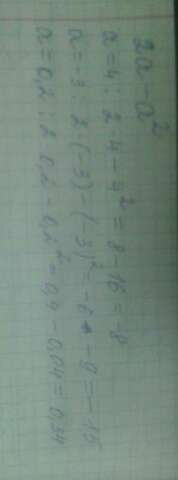 2a - a²
a = 4 : 2 · 4 - 4² = 8 - 16 = -8
a = -3 : 2 · (-3) - (-3)² = -6 - 9 = -15
a = 0,2 : 2 · 0,2 - 0,2² = 0,4 - 0,04 = 0,34